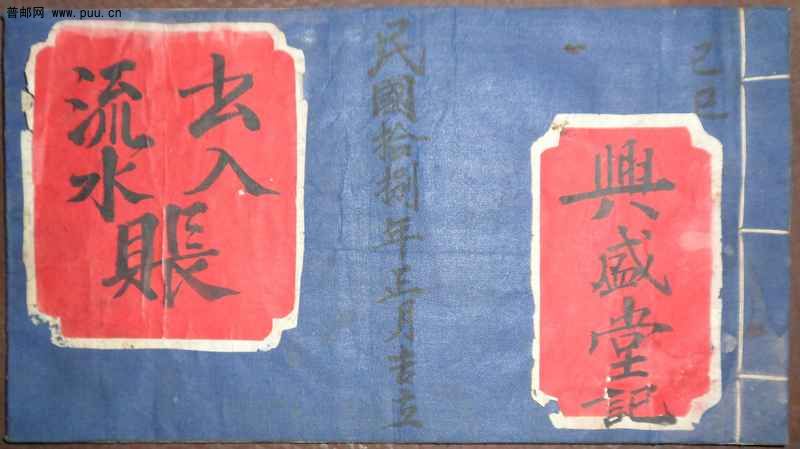 普邮网 www.puu.cn
己巳
興盛堂記
民國拾捌年正月吉立
出入
流水
賬